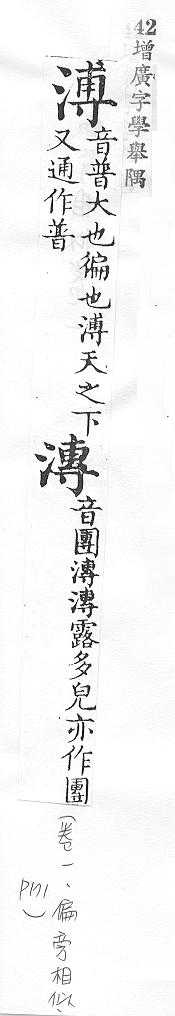 42增廣字學舉隅
溥
音普大也徧也溥天之下
又通作普
漙
音團漙漙露多皃亦作團
(卷一、偏旁相似、
P171)